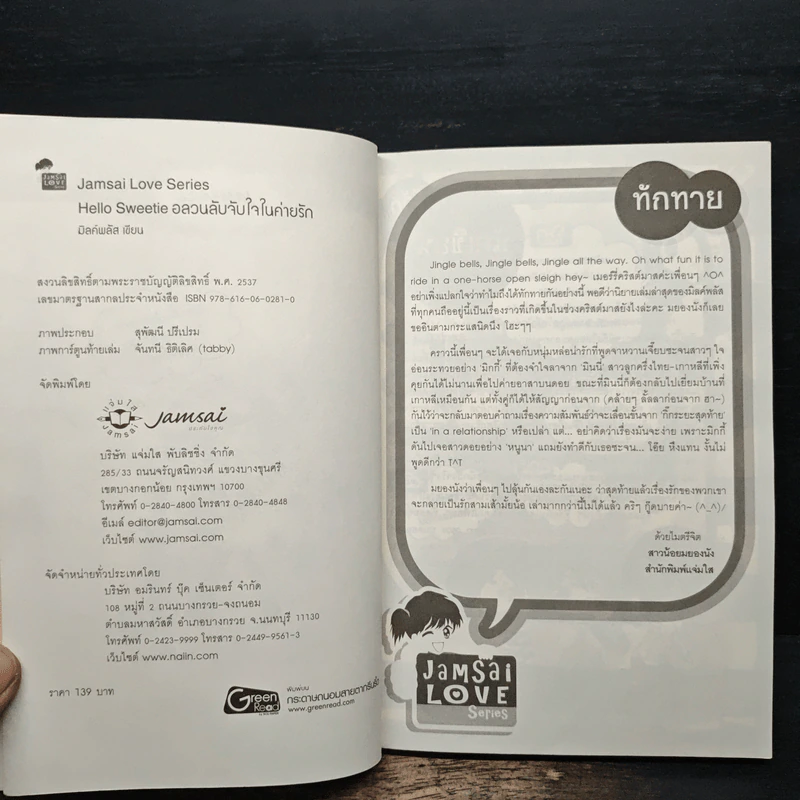 JAMSAI
LOVE
Jamsai Love Series
Hello Sweetie อลวนลับจับใจในค่ายรัก
มิลค์พลัส เขียน
สงวนลิขสิทธิ์ตามพระราชบัญญัติลิขสิทธิ์ พ.ศ. 2537
เลขมาตรฐานสากลประจำหนังสือ ISBN 978-616-06-0281-0
ภาพประกอบ สุพัฒนี ปรีเปรม
ภาพการ์ตูนท้ายเล่ม จันทนี ธิติเลิศ (tabby)
จัดพิมพ์โดย
แจ่มใส
Jamsai
Jamsai
บริษัท แจ่มใส พับลิชชิ่ง จำกัด
285/33 ถนนจรัญสนิทวงศ์ แขวงบางขุนศรี
เขตบางกอกน้อย กรุงเทพฯ 10700
โทรศัพท์ 0-2840-4800 โทรสาร 0-2840-4848
อีเมล์ editor@jamsai.com
เว็บไซต์ www.jamsai.com
จัดจำหน่ายทั่วประเทศโดย
บริษัท อมรินทร์ บุ๊ค เซ็นเตอร์ จำกัด
108 หมู่ที่ 2 ถนนบางกรวย-จงถนอม
ตำบลมหาสวัสดิ์ อำเภอบางกรวย จ.นนทบุรี 11130
โทรศัพท์ 0-2423-9999 โทรสาร 0-2449-9561-3
เว็บไซต์ www.naiin.com
ราคา 139 บาท
Green
Read
พิมพ์บน
กระดาษถนอมสายตากรีนรี้ด
www.greenread.com
ทักทาย
Jingle bells, Jingle bells, Jingle all the way. Oh what fun it is to
ride in a one-horse open sleigh hey~ เมอร์รี่คริสต์มาสค่ะเพื่อนๆ ^O^
อย่าเพิ่งแปลกใจว่าทำไมถึงได้ทักทายกันอย่างนี้ พอดีว่านิยายเล่มล่าสุดของมิลค์พลัส
ที่ทุกคนถืออยู่นี้เป็นเรื่องราวที่เกิดขึ้นในช่วงคริสต์มาสยังไงล่ะคะ มยองนังก็เลย
ขออินตามกระแสนิดนึง โฮะๆๆ
คราวนี้เพื่อนๆ จะได้เจอกับหนุ่มหล่อน่ารักที่พูดจาหวานเจี๊ยบซะจนสาวๆ ใจ
อ่อนระทวยอย่าง 'มิกกี้' ที่ต้องจำใจลาจาก 'มินนี่' สาวลูกครึ่งไทย-เกาหลีที่เพิ่ง
คุยกันได้ไม่นานเพื่อไปค่ายอาสาบนดอย ขณะที่มินนี่ก็ต้องกลับไปเยี่ยมบ้านที่
เกาหลีเหมือนกัน แต่ทั้งคู่ก็ได้ให้สัญญาก่อนจาก (คล้ายๆ ลั้ลลาก่อนจาก ฮา~)
กันไว้ว่าจะกลับมาตอบคำถามเรื่องความสัมพันธ์ว่าจะเลื่อนขั้นจาก 'กิ๊กระยะสุดท้าย'
เป็น 'in a relationship' หรือเปล่า แต่... อย่าคิดว่าเรื่องมันจะง่าย เพราะมิกกี้
ดันไปเจอสาวดอยอย่าง 'หนูนา' แถมยังทำดีกับเธอซะจน... โอ๊ย หึงแทน งั้นไม่
พูดดีกว่า T^T
มยองนังว่าเพื่อนๆ ไปลุ้นกันเองละกันเนอะ ว่าสุดท้ายแล้วเรื่องรักของพวกเขา
จะกลายเป็นรักสามเส้ามั้ยน้อ เล่ามากกว่านี้ไม่ได้แล้ว คริๆ กู๊ดบายค่า~ (^_^)/
ด้วยไมตรีจิต
สาวน้อยมยองนัง
สำนักพิมพ์แจ่มใส
JAMSAI
LOVE
Series